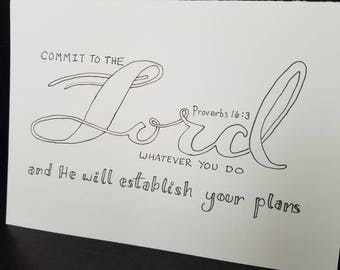 COMMIT TO THE
Lord
Proverbs 16:3
WHATEVER YOU DO
and He will establish your plans